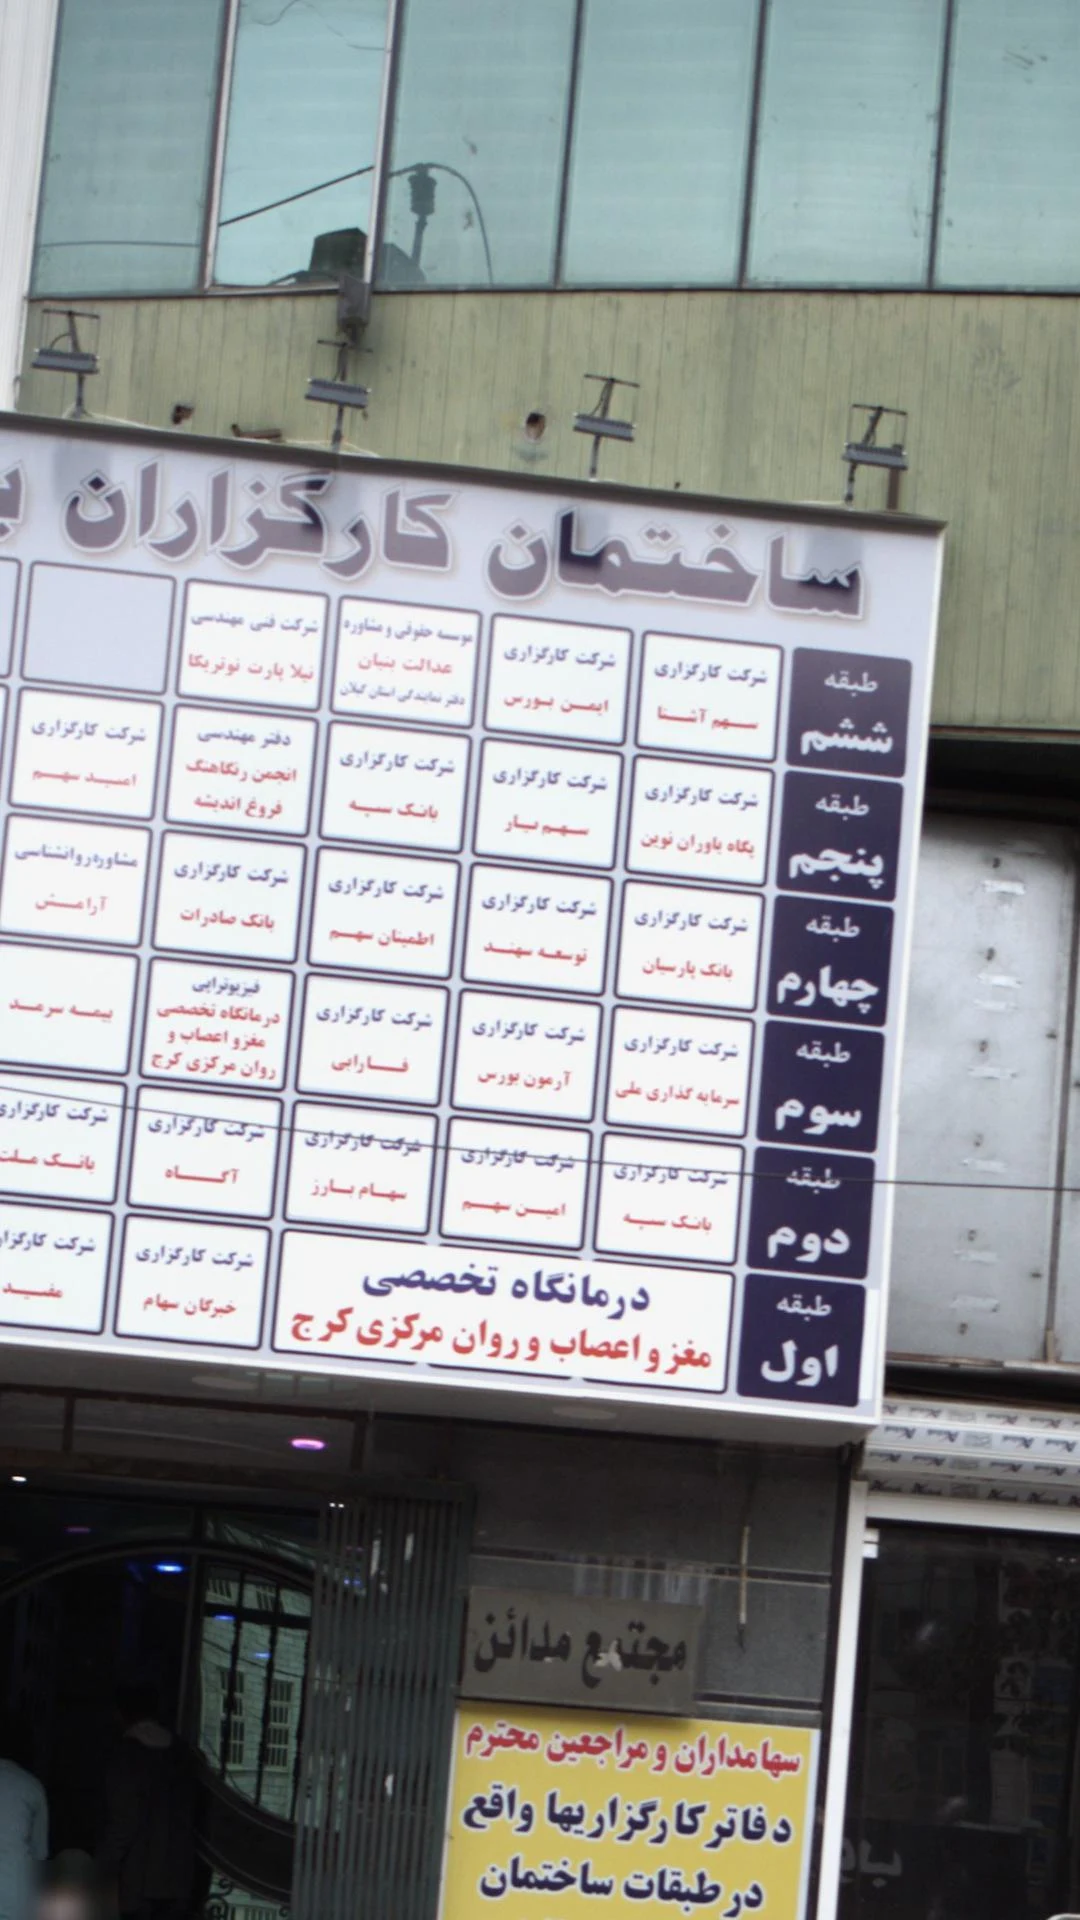 ساختمان کارگزاران
طبقه
ششم
شرکت کارگزاری
سهم آشنا
شرکت کارگزاری
ایمن بورس
موسسه حقوقی و مشاوره
عدالت بنیان
دفتر نمایندگی استان گیلان
شرکت فنی مهندسی
نیلا پارت نوتریکا
طبقه
پنجم
شرکت کارگزاری
پگاه یاوران نوین
شرکت کارگزاری
سهم یار
شرکت کارگزاری
بانک سپه
دفتر مهندسی
انجمن رنگاهنگ
فروغ اندیشه
شرکت کارگزاری
امید سهم
طبقه
چهارم
شرکت کارگزاری
بانک پارسیان
شرکت کارگزاری
توسعه سهند
شرکت کارگزاری
اطمینان سهم
شرکت کارگزاری
بانک صادرات
مشاوره روانشناسی
آرامش
طبقه
سوم
شرکت کارگزاری
سرمایه گذاری ملی
شرکت کارگزاری
آرمون بورس
شرکت کارگزاری
فارابی
فیزیوتراپی
درمانگاه تخصصی
مغز و اعصاب و
روان مرکزی کرج
بیمه سرمد
طبقه
دوم
شرکت کارگزاری
بانک سپه
شرکت کارگزاری
امین سهم
شرکت کارگزاری
سهام بارز
شرکت کارگزاری
آگاه
شرکت کارگزاری
بانک ملت
طبقه
اول
درمانگاه تخصصی
مغز و اعصاب و روان مرکزی کرج
شرکت کارگزاری
خبرگان سهام
شرکت کارگزاری
مفید
مجتمع مدائن
سهامداران و مراجعین محترم
دفاتر کارگزاریها واقع
در طبقات ساختمان